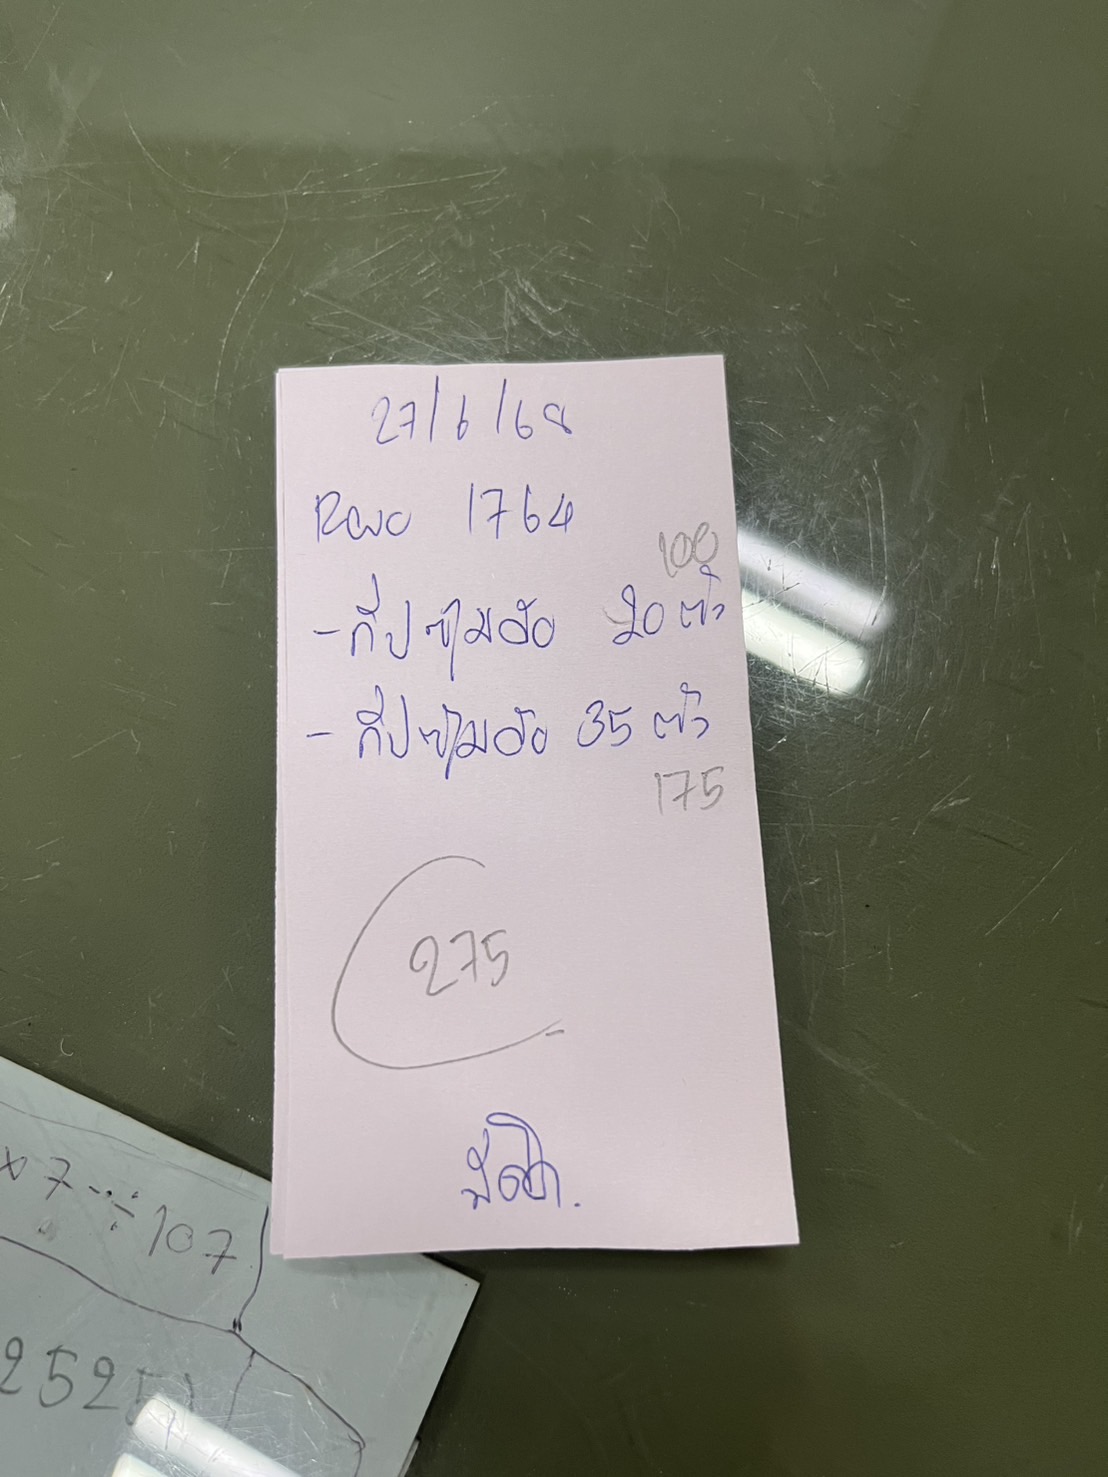 27/6/68
Revo 1764
100
- กิ๊ปซุ้มล้อ 20 ตัว
- กิ๊ปซุ้มล้อ 35 ตัว
175
275
x 7 ÷ 107
2525